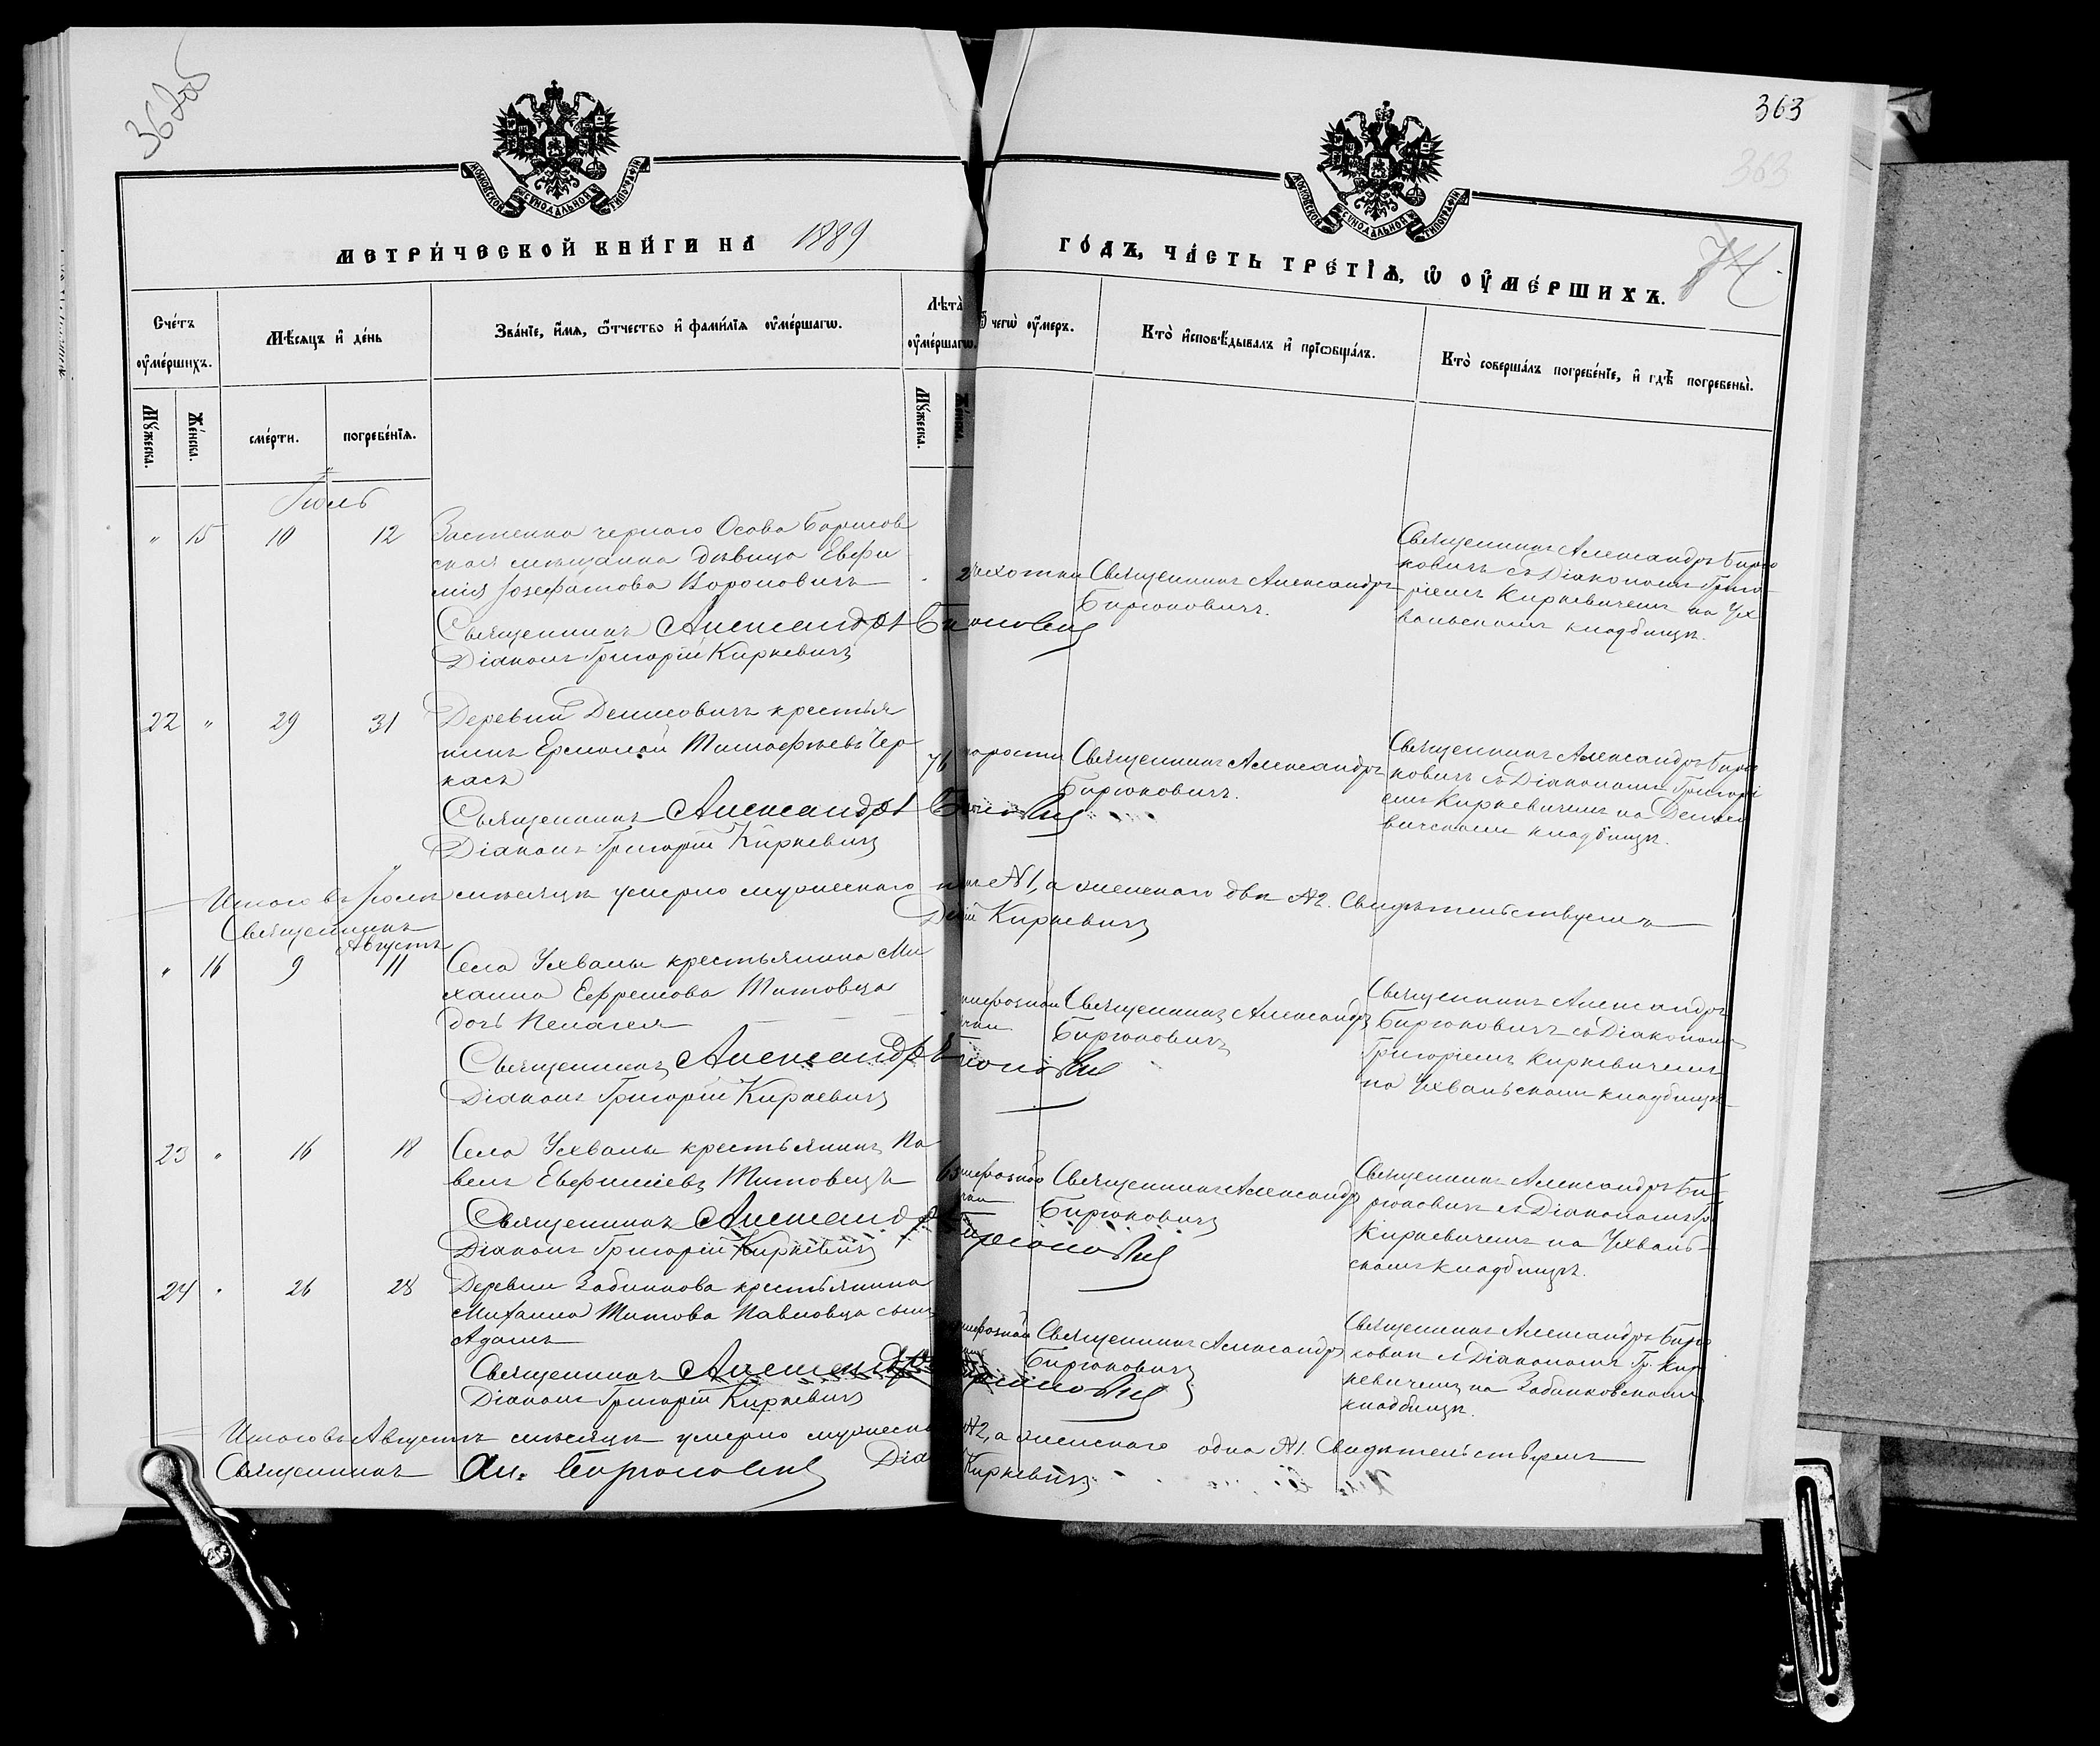 362об
363
363
МОСКОВСКОЙ СУНОДАЛЬНОЙ ТИПОГРАФІИ
МОСКОВСКОЙ СУНОДАЛЬНОЙ ТИПОГРАФІИ
МЕТРИ́ЧЕСКОЙ КНИ́ГИ НА 1889 ГО́ДЪ, ЧА́СТЬ ТРЕ́ТІѦ, Ѡ ОУМЕ́РШИХЪ. 74.
Сче́тъ оуме́ршихъ.
Мѣ́сяцъ и де́нь
Зва́нїе, и́мя, ѻ҆́тчество и фами́лїя оуме́ршагѡ.
Лѣта̀ оуме́ршагѡ.
Ѿ чегѡ̀ оу́меръ.
Кто̀ и҆сповѣ́дывалъ и прїѡбща́лъ.
Кто̀ соверша́лъ погребе́нїе, и гдѣ̀ погребены̀.
Му́жеска.
Же́нска.
сме́рти.
погребе́нїѧ.
Му́жеска.
Же́нска.
Іюль
" 15 10 12
Застенка чернаго Осова Борисов
ская мѣщанка дѣвица Евфи
мія Іозефатова Воронович
Священникъ Александръ
Діаконъ Григорій Киркевичъ
чахотки
Священникъ Александръ
Бирюковичъ.
Священникъ Александръ Бирю
ковичъ съ Діакономъ Григо
ріемъ Киркевичемъ на Ух
вальскомъ кладбищѣ.
22 " 29 31
Деревни Денисовичъ крестья
нинъ Ермолай Тимофѣевъ Чер
касъ
Священникъ Александръ
Діаконъ Григорій Киркевичъ
76
Священникъ Александръ
Бирюковичъ.
Священникъ Александръ Бирю
ковичъ съ Діакономъ Григорі
емъ Киркевичемъ на Дениси
вичскомъ кладбищѣ.
Итого въ Іюлѣ мѣсяцѣ умерло мужескаго №1, а женскаго двѣ №2. Свидѣтельствуемъ
Священникъ Киркевичъ
Августъ
" 16 9 11
Села Ухвалы крестьянина Ми
хаила Ефремова Титовца
дочь Пелагея
Священникъ Александръ
Діаконъ Григорій Киркевичъ
Священникъ Александръ
Бирюковичъ
Священникъ Александръ
Бирюковичъ съ Діакономъ
Григоріемъ Киркевичемъ
на Ухвальскомъ кладбищѣ
23 " 16 18
Села Ухвалы крестьянинъ Па
велъ Евфиміевъ Титовецъ
Священникъ Александръ
Діаконъ Григорій Киркевичъ
Священникъ Александръ
Бирюковичъ
Священникъ Александръ Би
рюковичъ съ Діакономъ Гр.
Киркевичемъ на Ухваль
скомъ кладбищѣ.
24 " 26 28
Деревни Забинкова крестьянина
Михаила Титова Павловца сынъ
Адамъ
Священникъ Александръ
Діаконъ Григорій Киркевичъ
Священникъ Александръ
Бирюковичъ
Священникъ Александръ Бирю
ковичъ съ Діакономъ Гр. Кир
кевичемъ на Забинковскомъ
кладбищѣ.
Итого въ Августѣ мѣсяцѣ умерло мужеска №2, а женскаго одна №1. Свидѣтельствуемъ
Священникъ Ал. Бирюковичъ Діа Киркевичъ